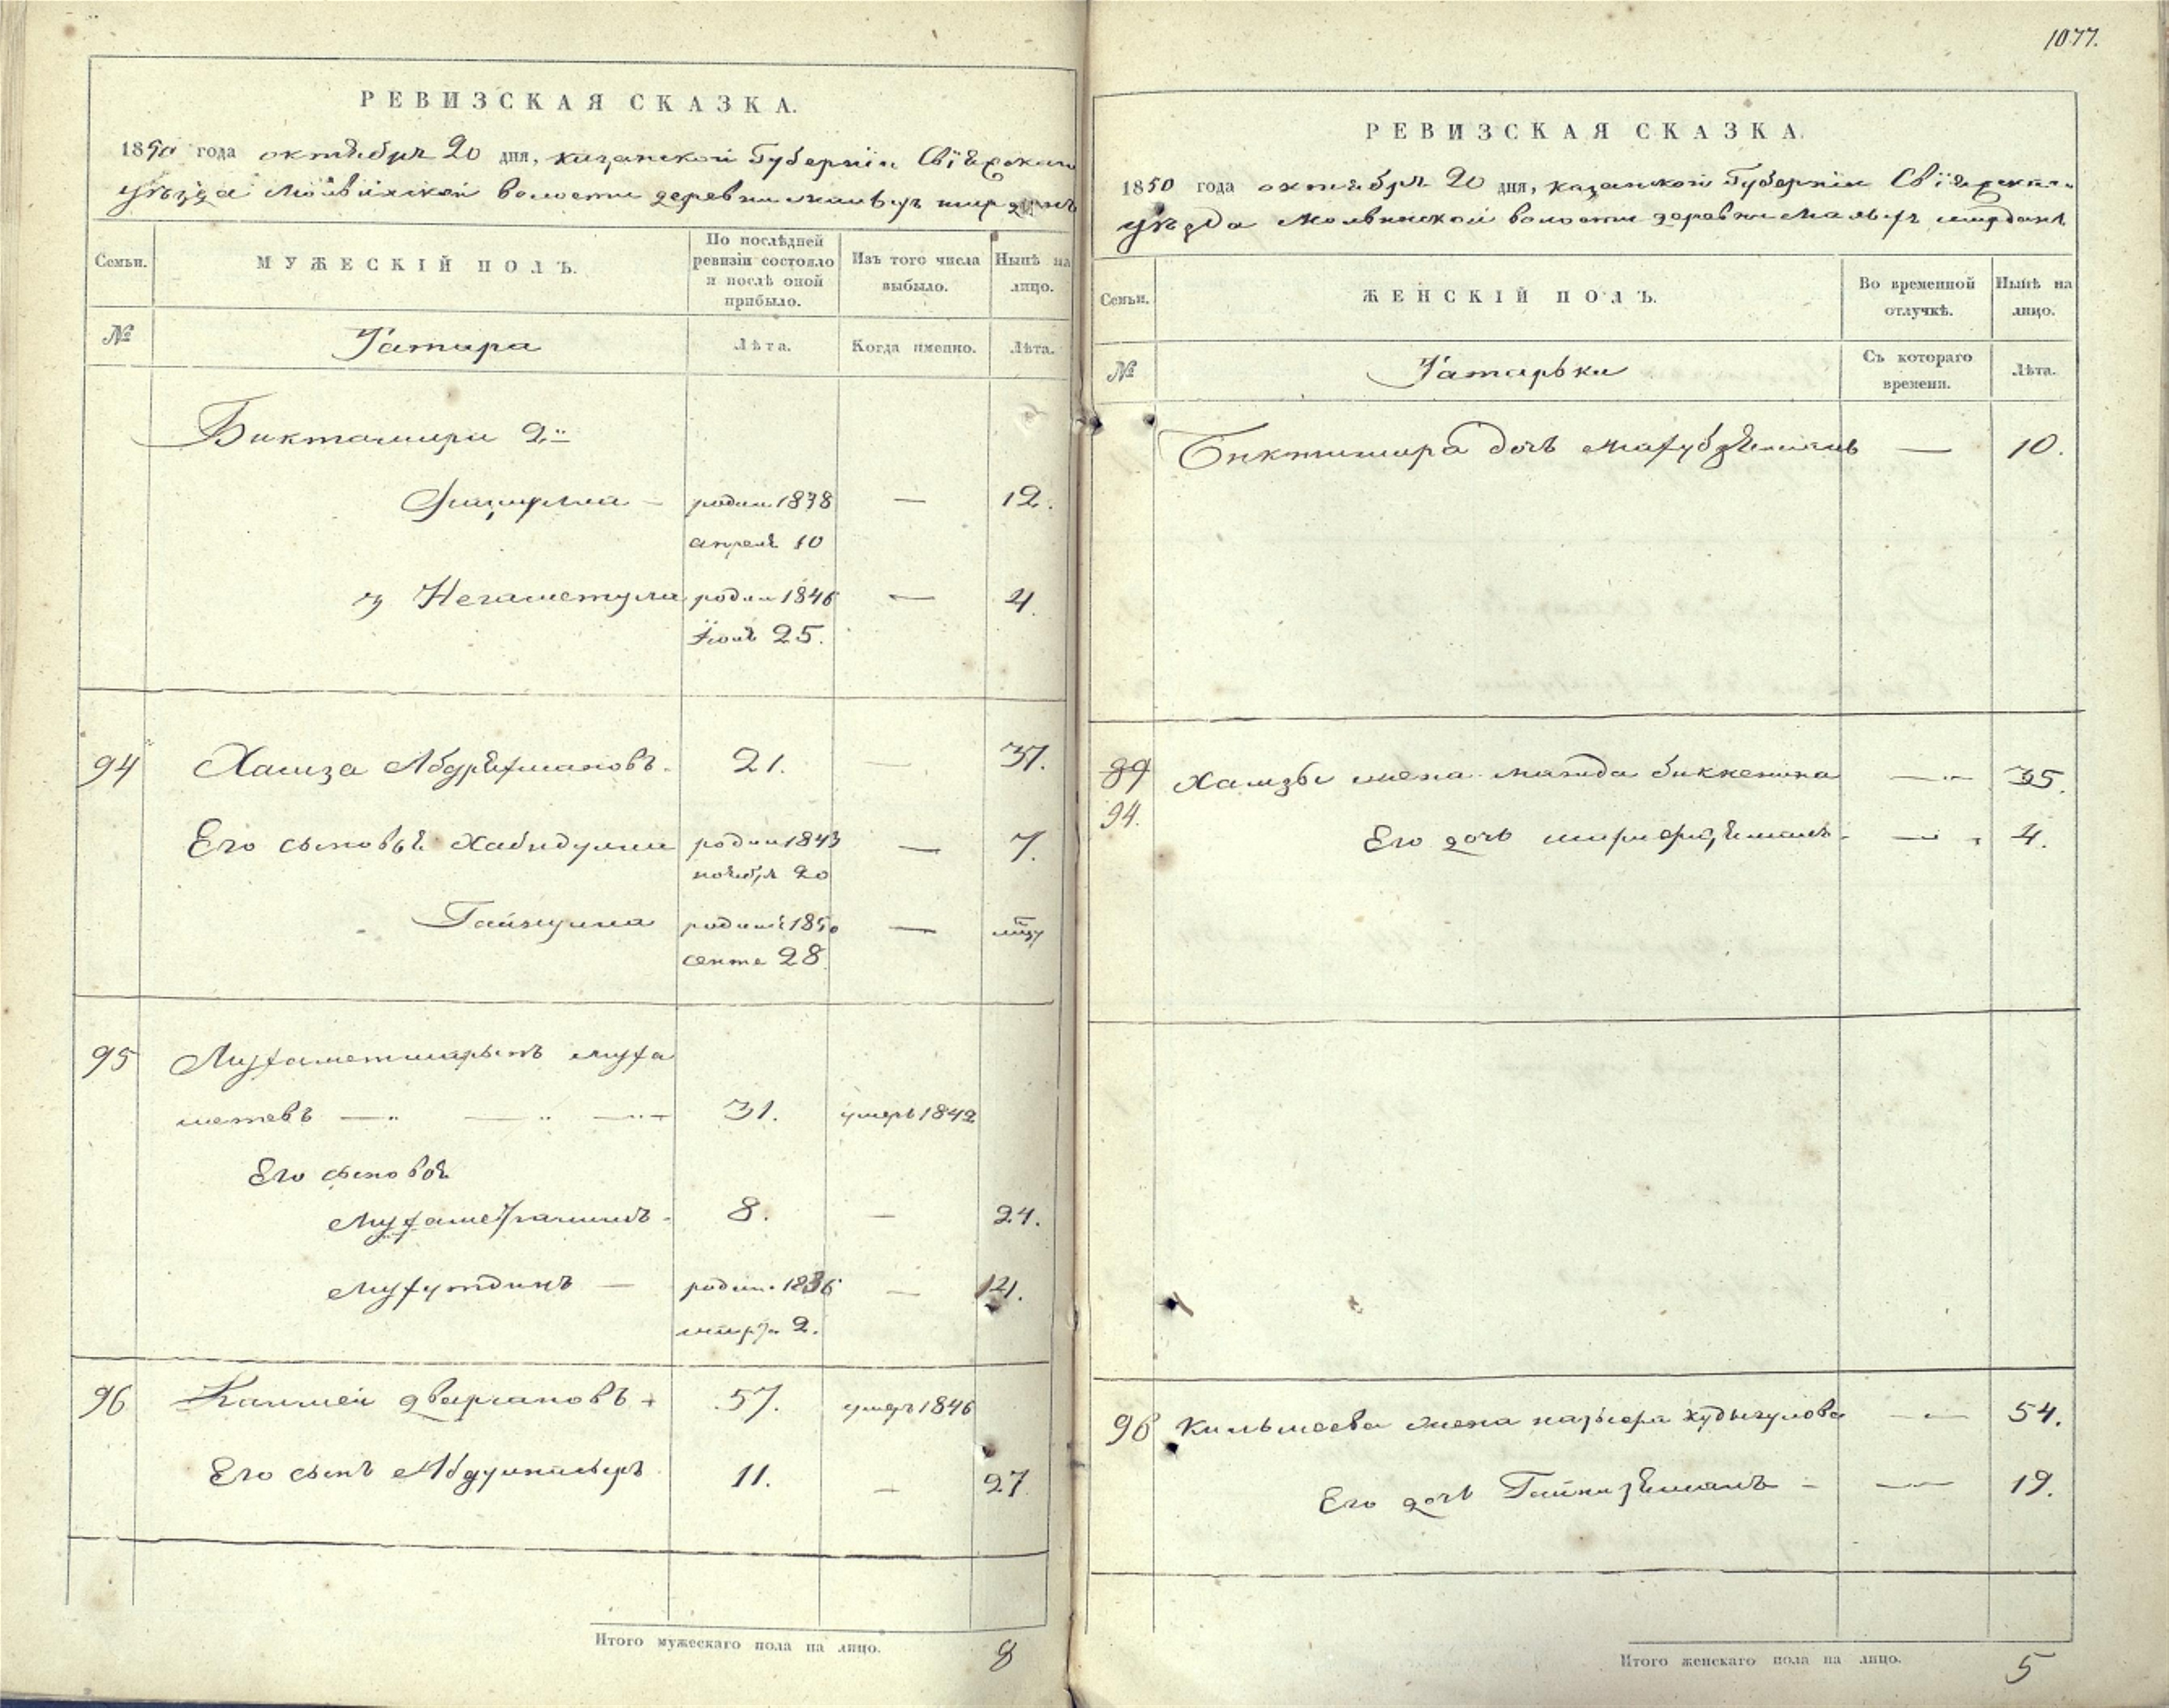 1077.
РЕВИЗСКАЯ СКАЗКА.
1850 года октября 20 дня, казанской Губернїи Свїяжскаго
уѣзда Молвинской волости деревни
Семьи.
МУЖЕСКІЙ ПОЛЪ.
По послѣдней ревизіи состояло и послѣ оной прибыло.
Изъ того числа выбыло.
Нынѣ на лицо.
№
Татара
Лѣта.
Когда именно.
Лѣта.
Биктамира 2й
родил 1838 — 12.
апреля 10
3й Негаметулла родил 1846 — 4.
Июля 25.
94 Хамза Абдряхмановъ. 21. — 37.
Его сыновья Хабидулла родил 1843 — 7.
ноября 20
Гайнулла родил 1850 —
сентя 28
95 Мухаметшарыпъ муха
метевъ — — — 31. умеръ 1842
Его сыновья
8. — 24.
Мухутдинъ — родил. 1836 — 14.
марта 2.
96 57. умеръ 1846
Его сынъ 11. — 27
Итого мужескаго пола на лицо. 8
РЕВИЗСКАЯ СКАЗКА.
1850 года октября 20 дня, казанской Губернїи Свїяжскаго
уѣзда Молвинской волости деревни
Семьи.
ЖЕНСКІЙ ПОЛЪ.
Во временной отлучкѣ.
Нынѣ на лицо.
№
Татарьки
Съ котораго времени.
Лѣта.
Биктимира дочь — 10.
89 Хамзы жена биккенина — 35.
94. Его дочь — 4.
96 Кильмеева жена — 54.
Его дочь Гайнизямалъ — — 19.
Итого женскаго пола на лицо. 5